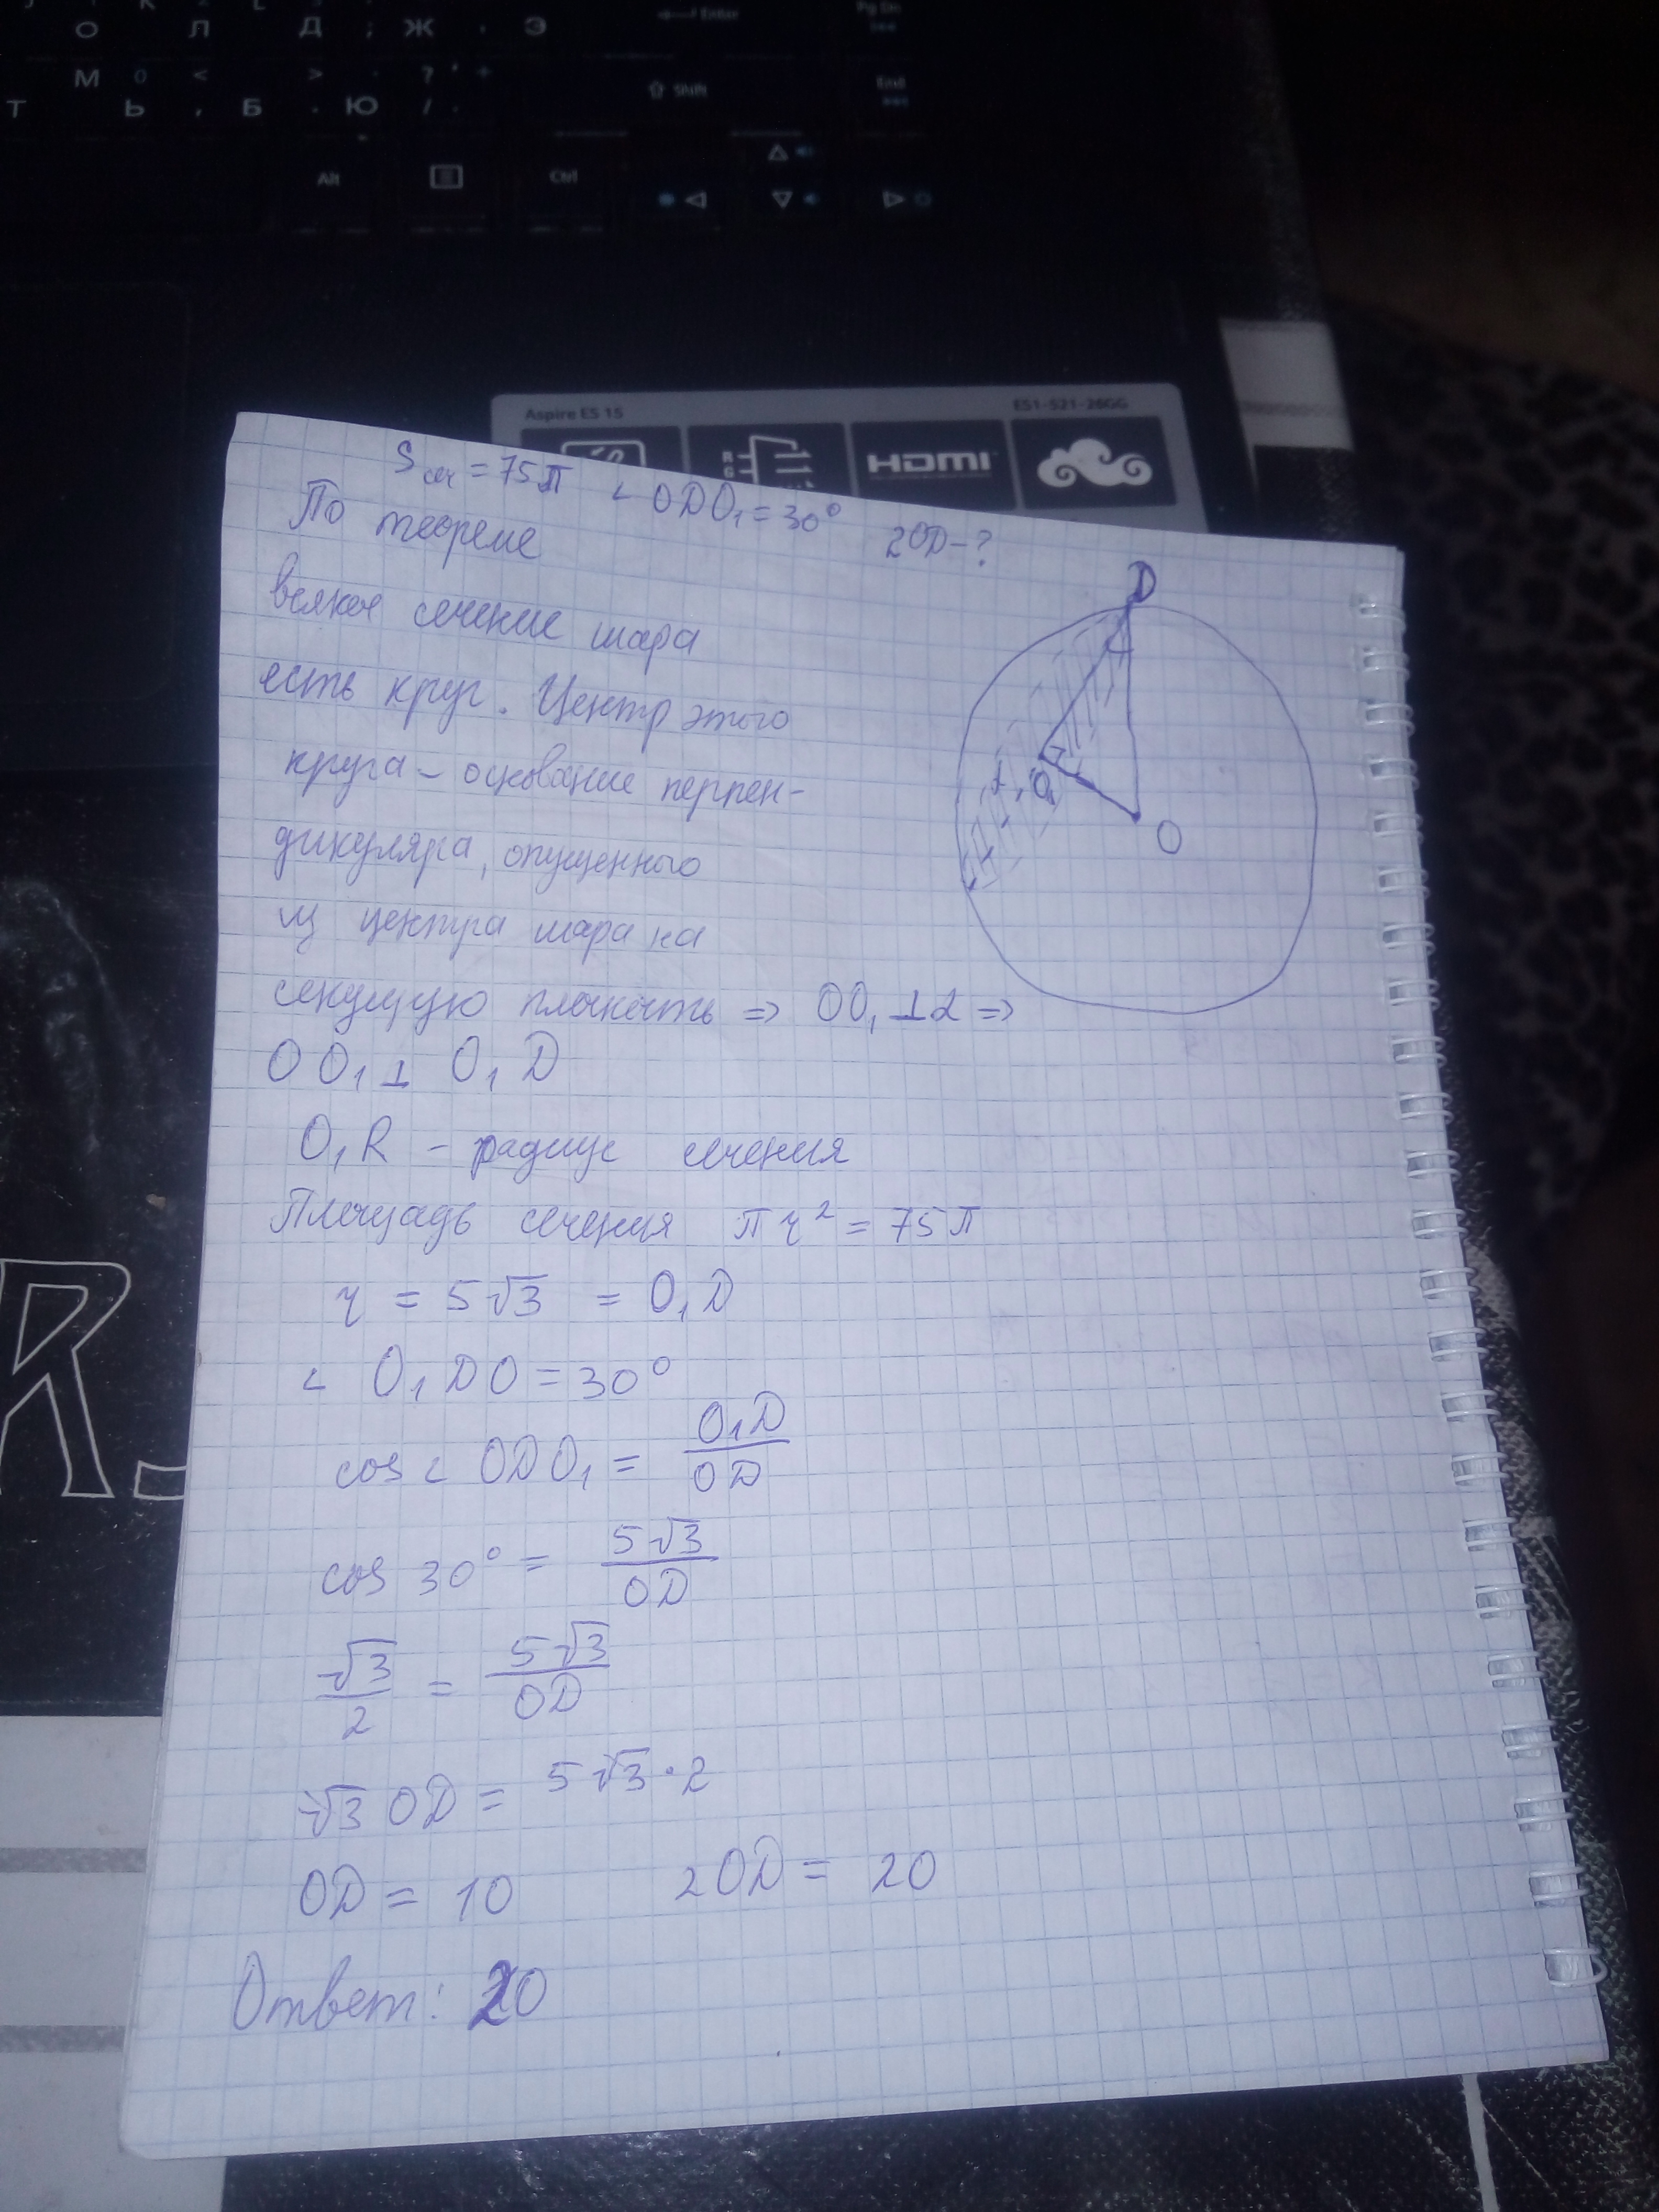 О Л Д ; Ж , Э Enter Pg Dn
М 0 < > ? Shift End
Т Ь , Б . Ю / .
Alt Ctrl
Aspire ES 15 ES1-521-26GG
HDMI
Sсеч = 75π < ODO₁ = 30° 2OD - ?
По теореме
D
всякое сечение шара
есть круг. Центр этого
круга - основание перпен-
O₁
O
дикуляра, опущенного
из центра шара на
секущую плоскость => OO₁ ⊥ α =>
OO₁ ⊥ O₁D
O₁R - радиус сечения
Площадь сечения πr² = 75π
r = 5√3 = O₁D
< O₁DO = 30°
cos < ODO₁ = O₁D/OD
cos 30° = 5√3/OD
√3/2 = 5√3/OD
√3 OD = 5√3 · 2
OD = 10 2OD = 20
Ответ: 20
R.